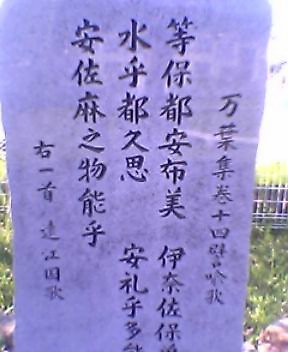 万葉集巻十四譬喩歌
等保都安布美 伊奈佐保
水乎都久思 安礼乎多
安佐麻之物能乎
右一首 遠江国歌